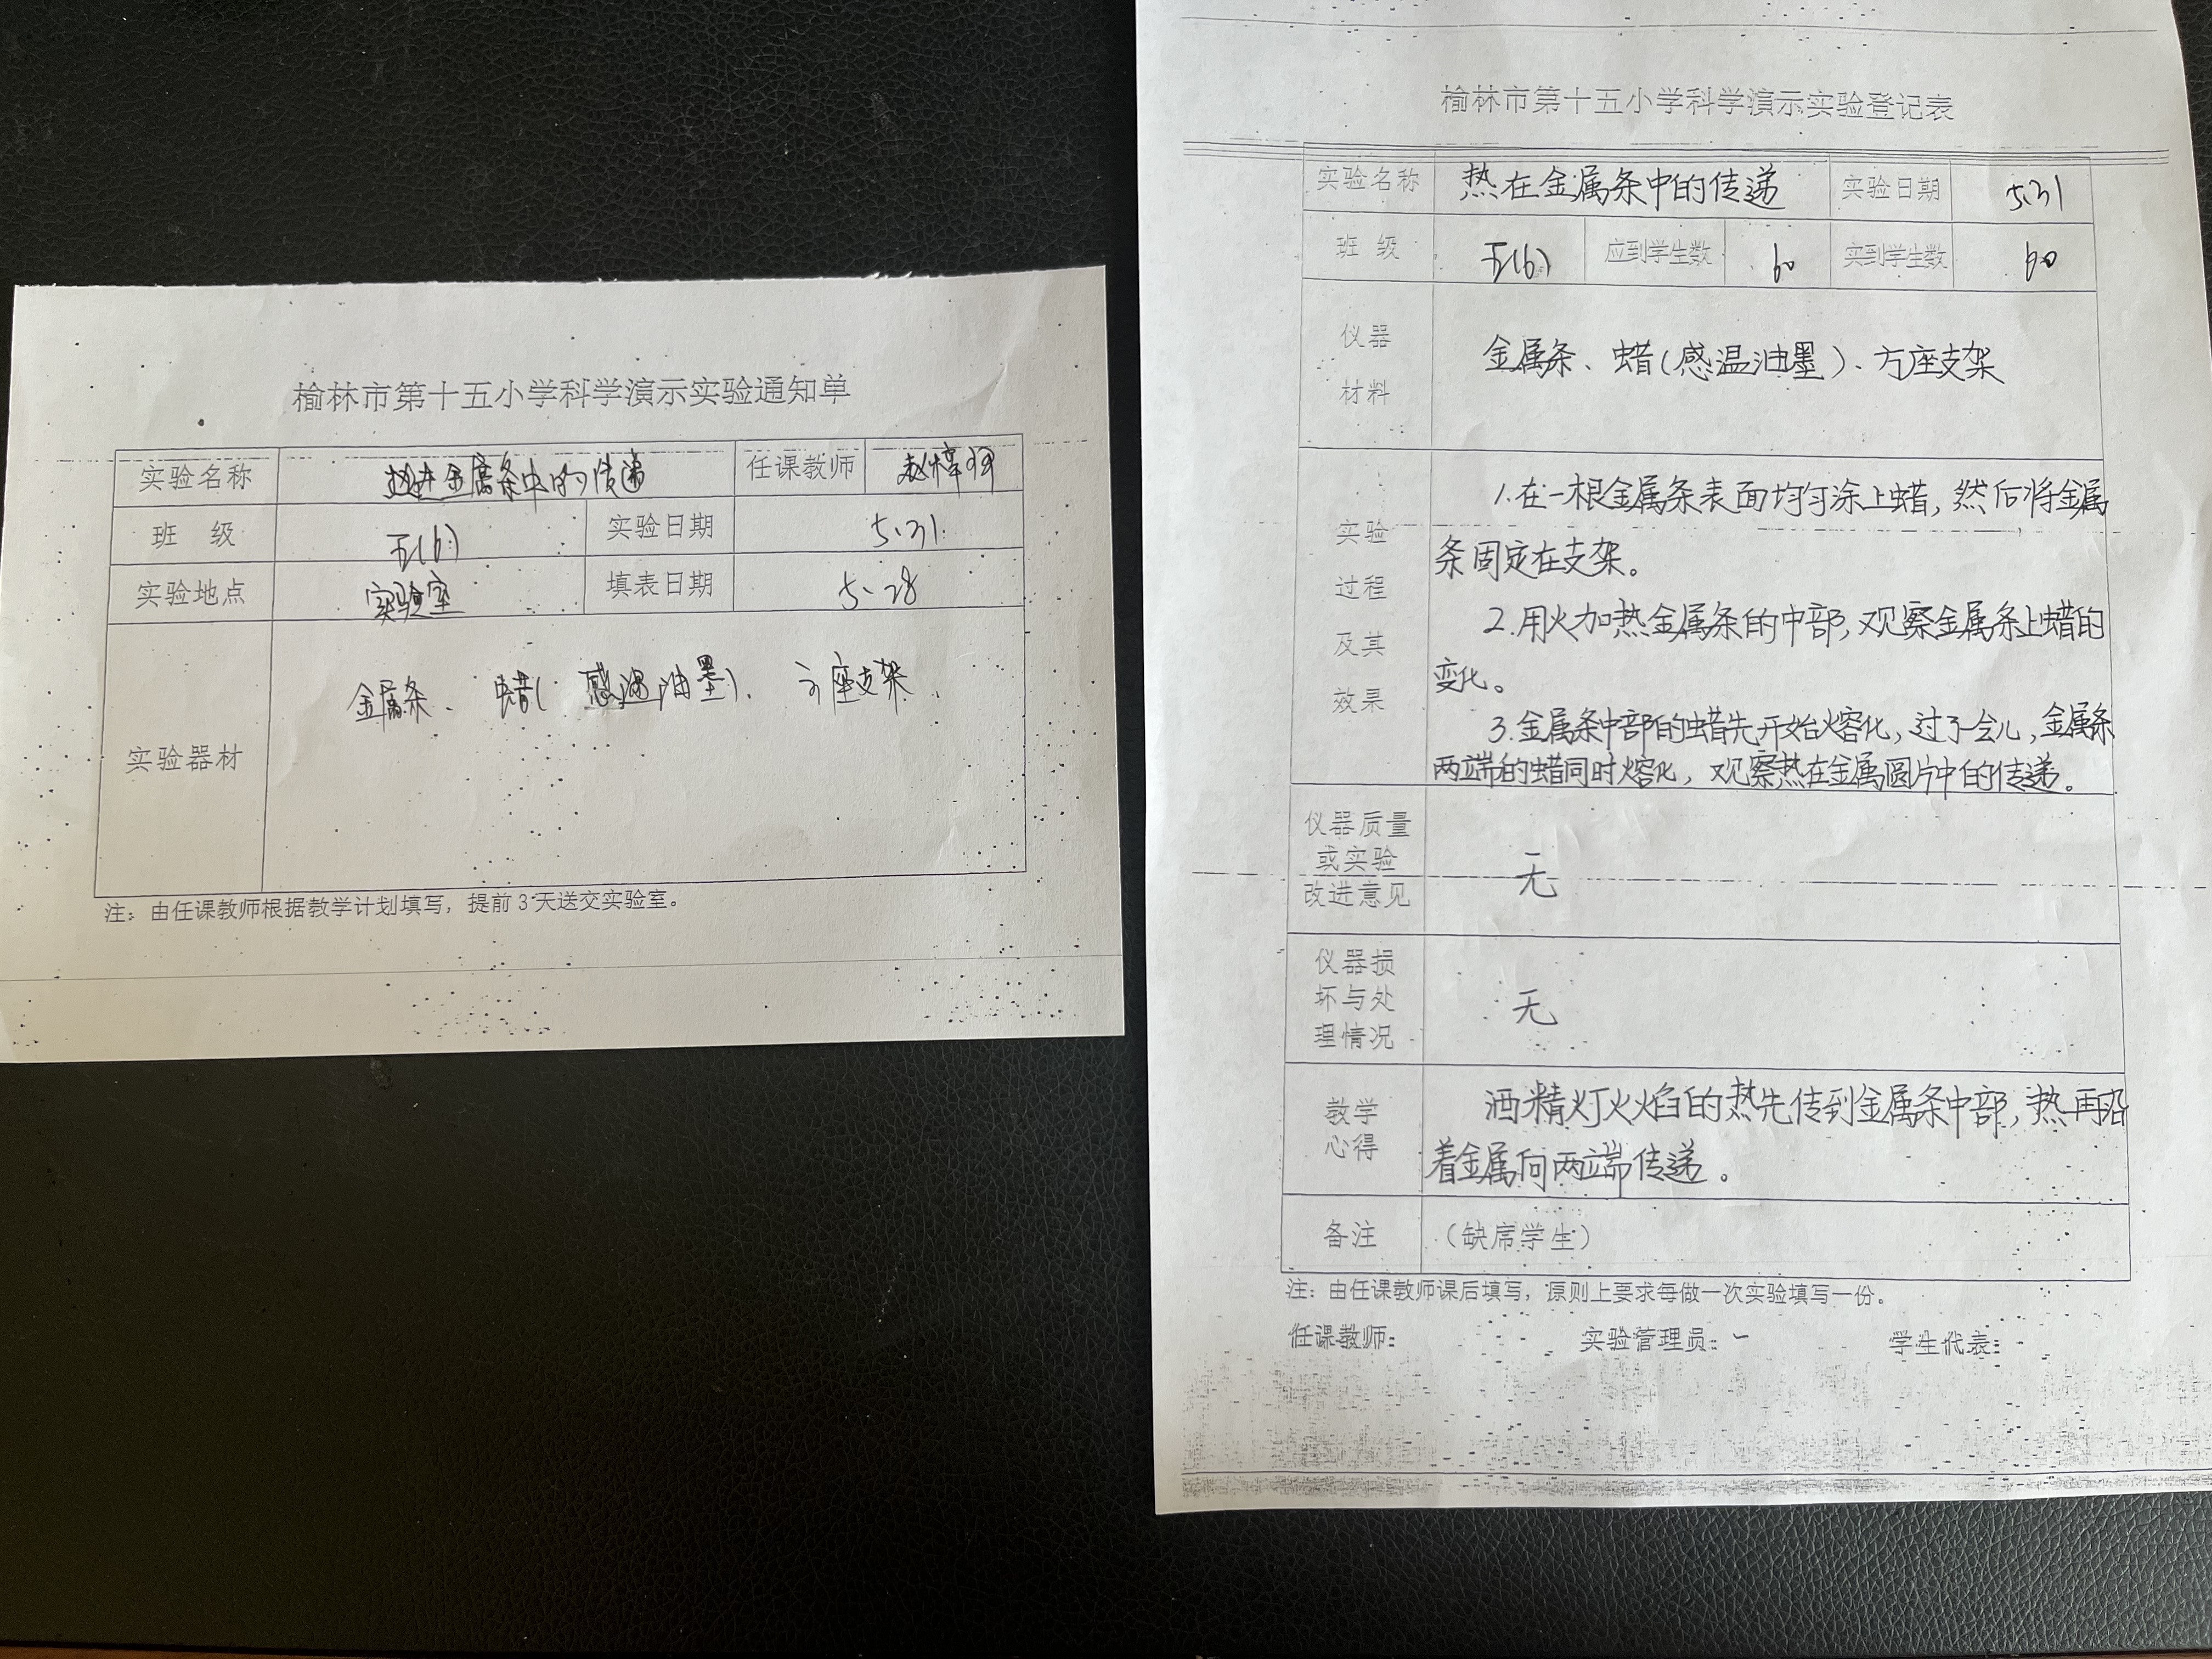 榆林市第十五小学科学演示实验通知单
实验名称 热在金属条中的传递 任课教师
班 级 五(6) 实验日期 5.31
实验地点 实验室 填表日期 5.28
实验器材 金属条、蜡(感温油墨)、方座支架
注：由任课教师根据教学计划填写，提前3天送交实验室。
榆林市第十五小学科学演示实验登记表
实验名称 热在金属条中的传递 实验日期 5.31
班 级 五(6) 应到学生数 60 实到学生数 60
仪器
材料
金属条、蜡(感温油墨)、方座支架
实验
过程
及其
效果
1.在一根金属条表面均匀涂上蜡，然后将金属
条固定在支架。
2.用火加热金属条的中部，观察金属条上蜡的
变化。
3.金属条中部的蜡先开始熔化，过了一会儿，金属条
两端的蜡同时熔化，观察热在金属圆片中的传递。
仪器质量
或实验
改进意见
无
仪器损
坏与处
理情况
无
教学
心得
洒精灯火焰的热先传到金属条中部，热再沿
着金属向两端传递。
备注 （缺席学生）
注：由任课教师课后填写，原则上要求每做一次实验填写一份。
任课教师： 实验管理员： 学生代表：